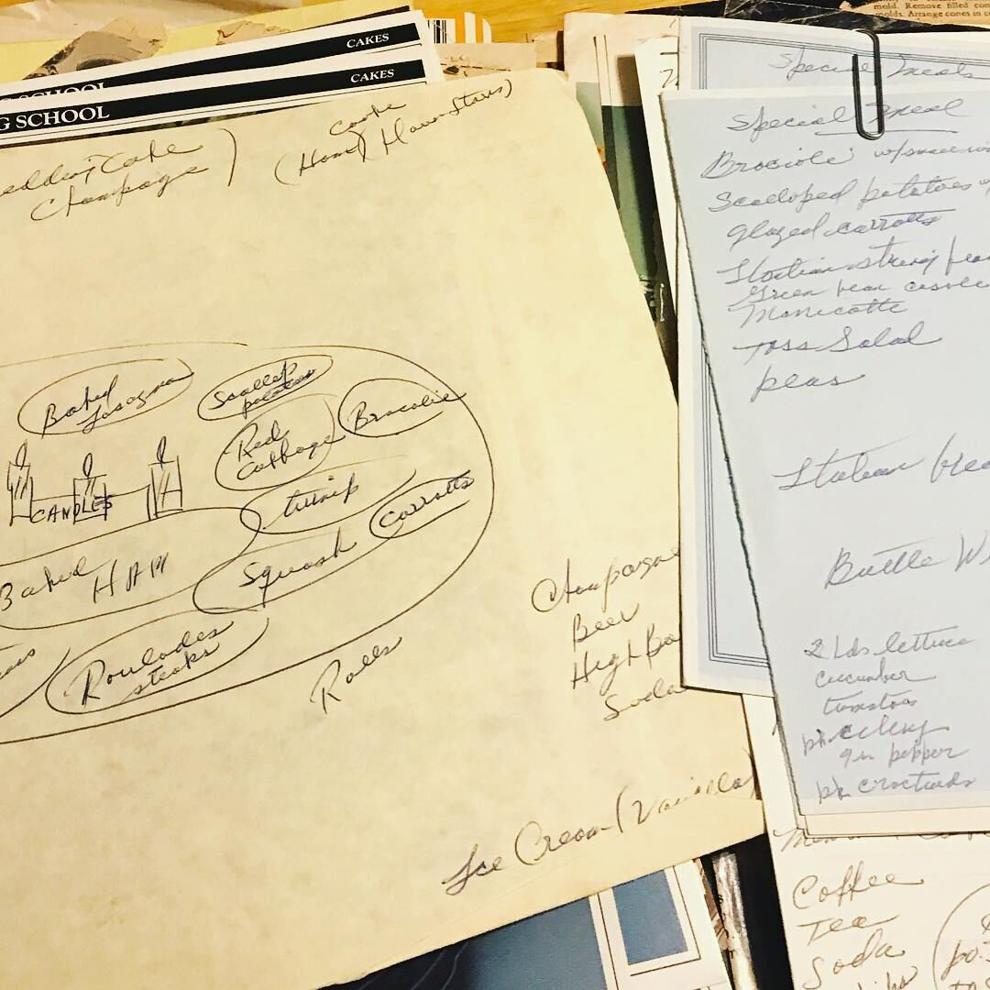 mold. Remove filled con
molds. Arrange cones in c
CAKES
CAKES
SCHOOL
G SCHOOL
edding Cake
Champage
Cooke
(Home) Hawn Stars)
Baked
Lasagna
Scallop
potatoes
Brocolie
Red
Cabbage
turnip
Carrotts
CANDLES
Baked
HAM
Squash
Roulades
steaks
Rolls
Champagne
Beer
High Ba
Soda
Ice Cream (Vanilla)
Special Meals
Special Meal
Brociole
Scalloped potatoes
glazed carrotts
string bea
Green bean casse
Manicotte
Toss Salad
peas
Italian brea
Bottle W
2 Lds lettuce
cucumber
tomatoes
pk celery
gn pepper
pk croctuds
Coffee
Tea
Soda